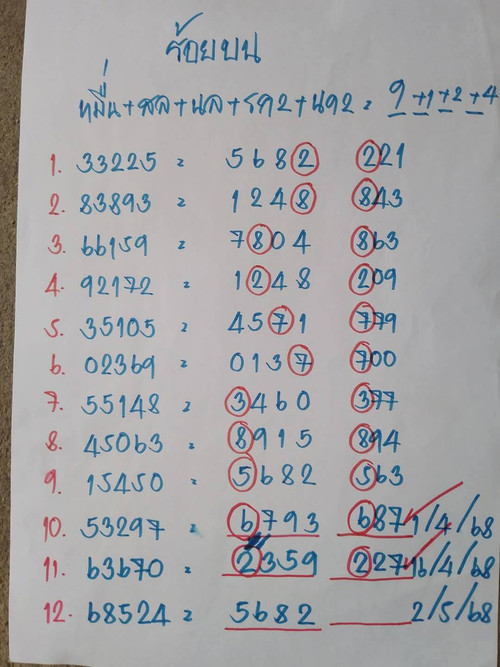 ร้อยบน
หมื่น+สล+นล+รค2+นค2 = 9+1+2+4
1. 33225 = 5682 221
2. 83893 = 1248 843
3. 66159 = 7804 863
4. 92172 = 1248 209
5. 35105 = 4571 779
6. 02369 = 0137 700
7. 55148 = 3460 377
8. 45063 = 8915 894
9. 15450 = 5682 563
10. 53297 = 6793 687 1/4/68
11. 63670 = 2359 227 16/4/68
12. 68524 = 5682 2/5/68